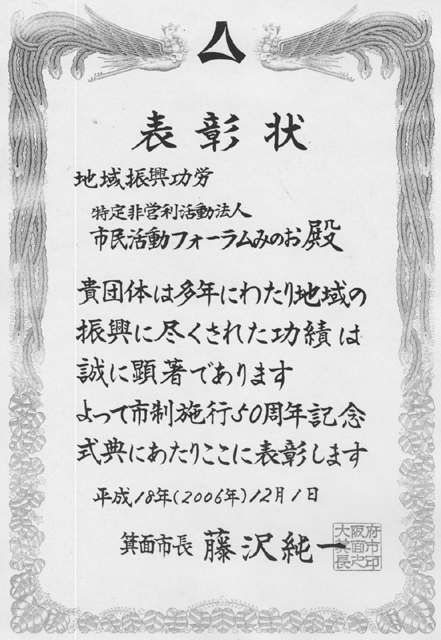 表彰状
地域振興功労
特定非営利活動法人
市民活動フォーラムみのお殿
貴団体は多年にわたり地域の
振興に尽くされた功績は
誠に顕著であります
よって市制施行50周年記念
式典にあたりここに表彰します
平成18年(2006年)12月1日
箕面市長 藤沢純一
大阪府
箕面市
長之印